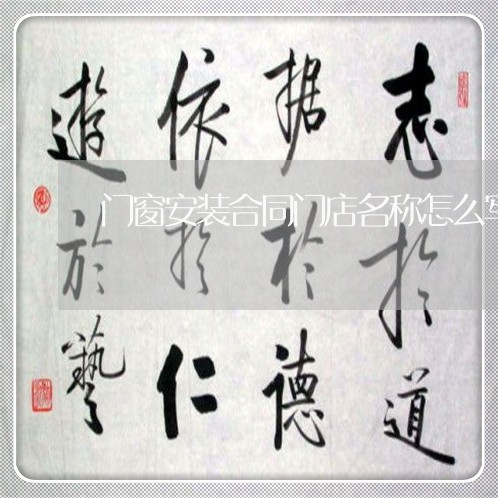 志於道
据於德
依於仁
遊於藝
门窗安装合同门店名称怎么写